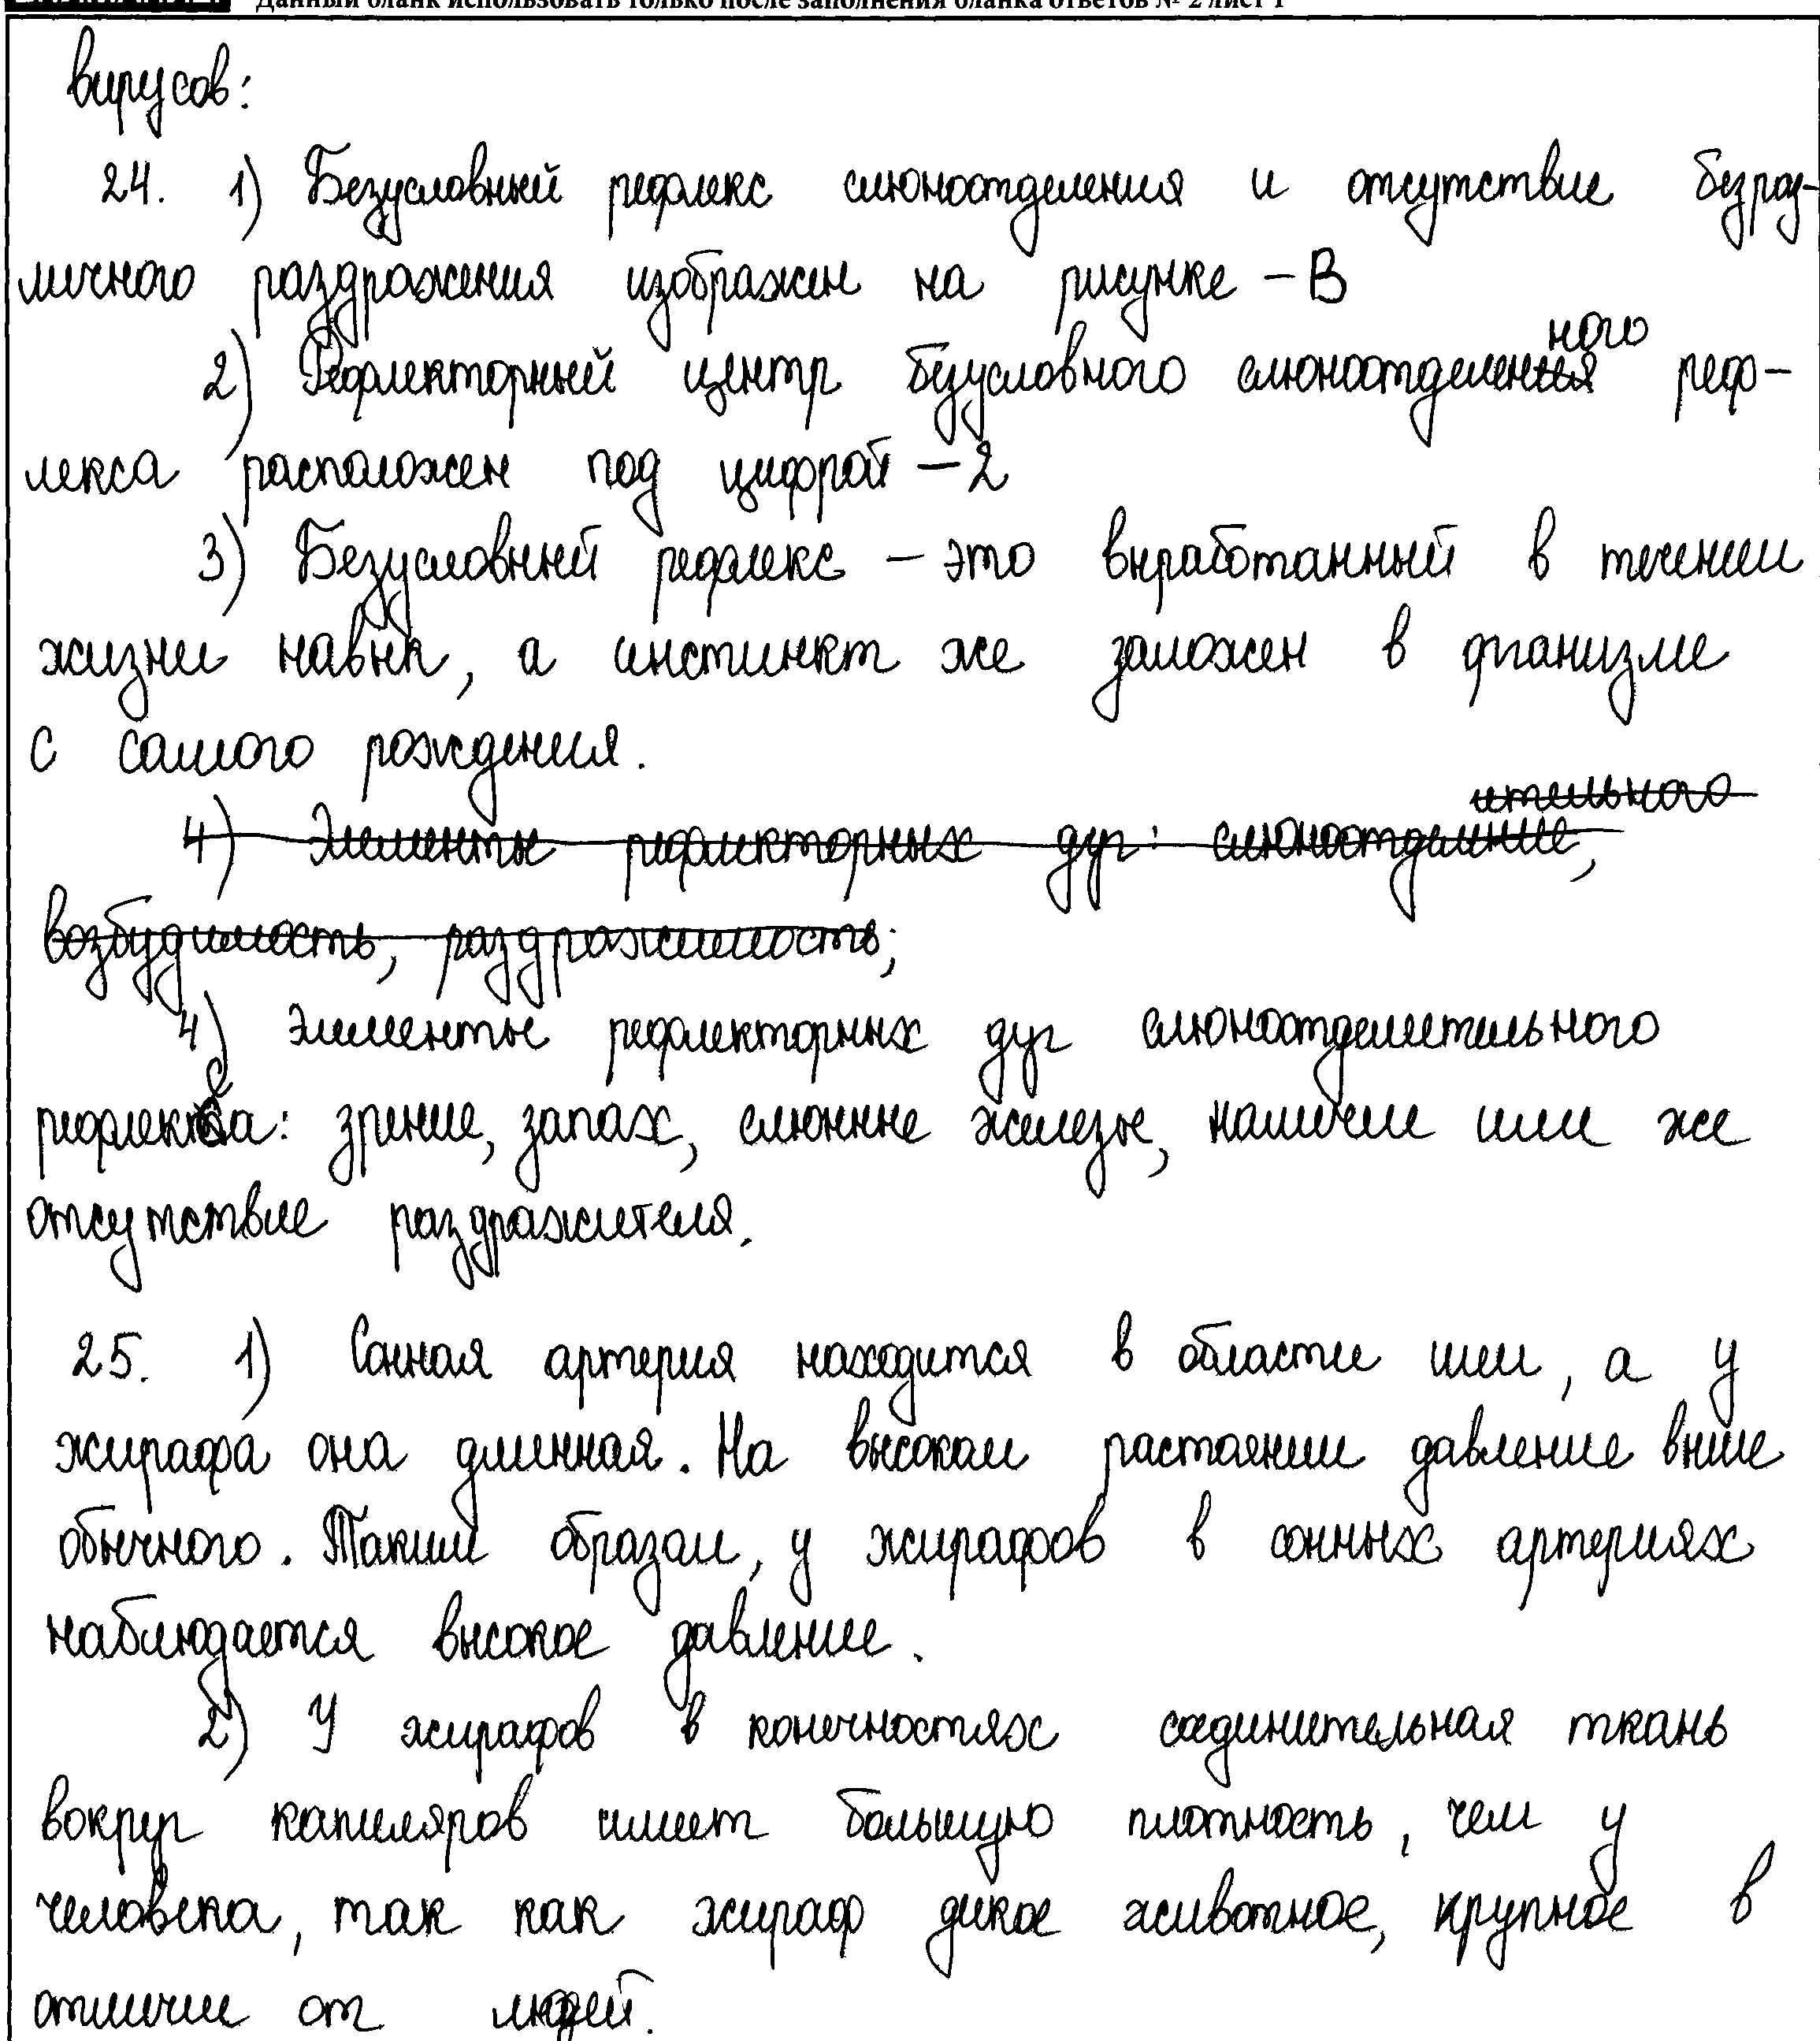 Данный бланк использовать только после заполнения бланка ответов № 2 лист 1
вирусов:
24. 1) Безусловный рефлекс слюноотделения и отсутствие безраз-
личного раздражения изображен на рисунке – В
ного
2) Рефлекторный центр безусловного слюноотделения реф-
лекса расположен под цифрой – 2
3) Безусловный рефлекс – это выработанный в течении
жизни навык, а инстинкт же заложен в организме
с самого рождения.
ительного
4) Элементы рефлекторных дуг: слюноотделение,
возбудимость, раздражимость;
4) Элементы рефлекторных дуг слюноотделительного
рефлекса: зрение, запах, слюнные железы, наличие или же
отсутствие раздражителя.
25. 1) Сонная артерия находится в области шеи, а у
жирафа она длинная. На высоком растоянии давление выше
обычного. Таким образом, у жирафов в сонных артериях
наблюдается высокое давление.
2) У жирафов в конечностях соединительная ткань
вокруг капиляров имеет большую плотность, чем у
человека, так как жираф дикое животное, крупное в
отличие от людей.